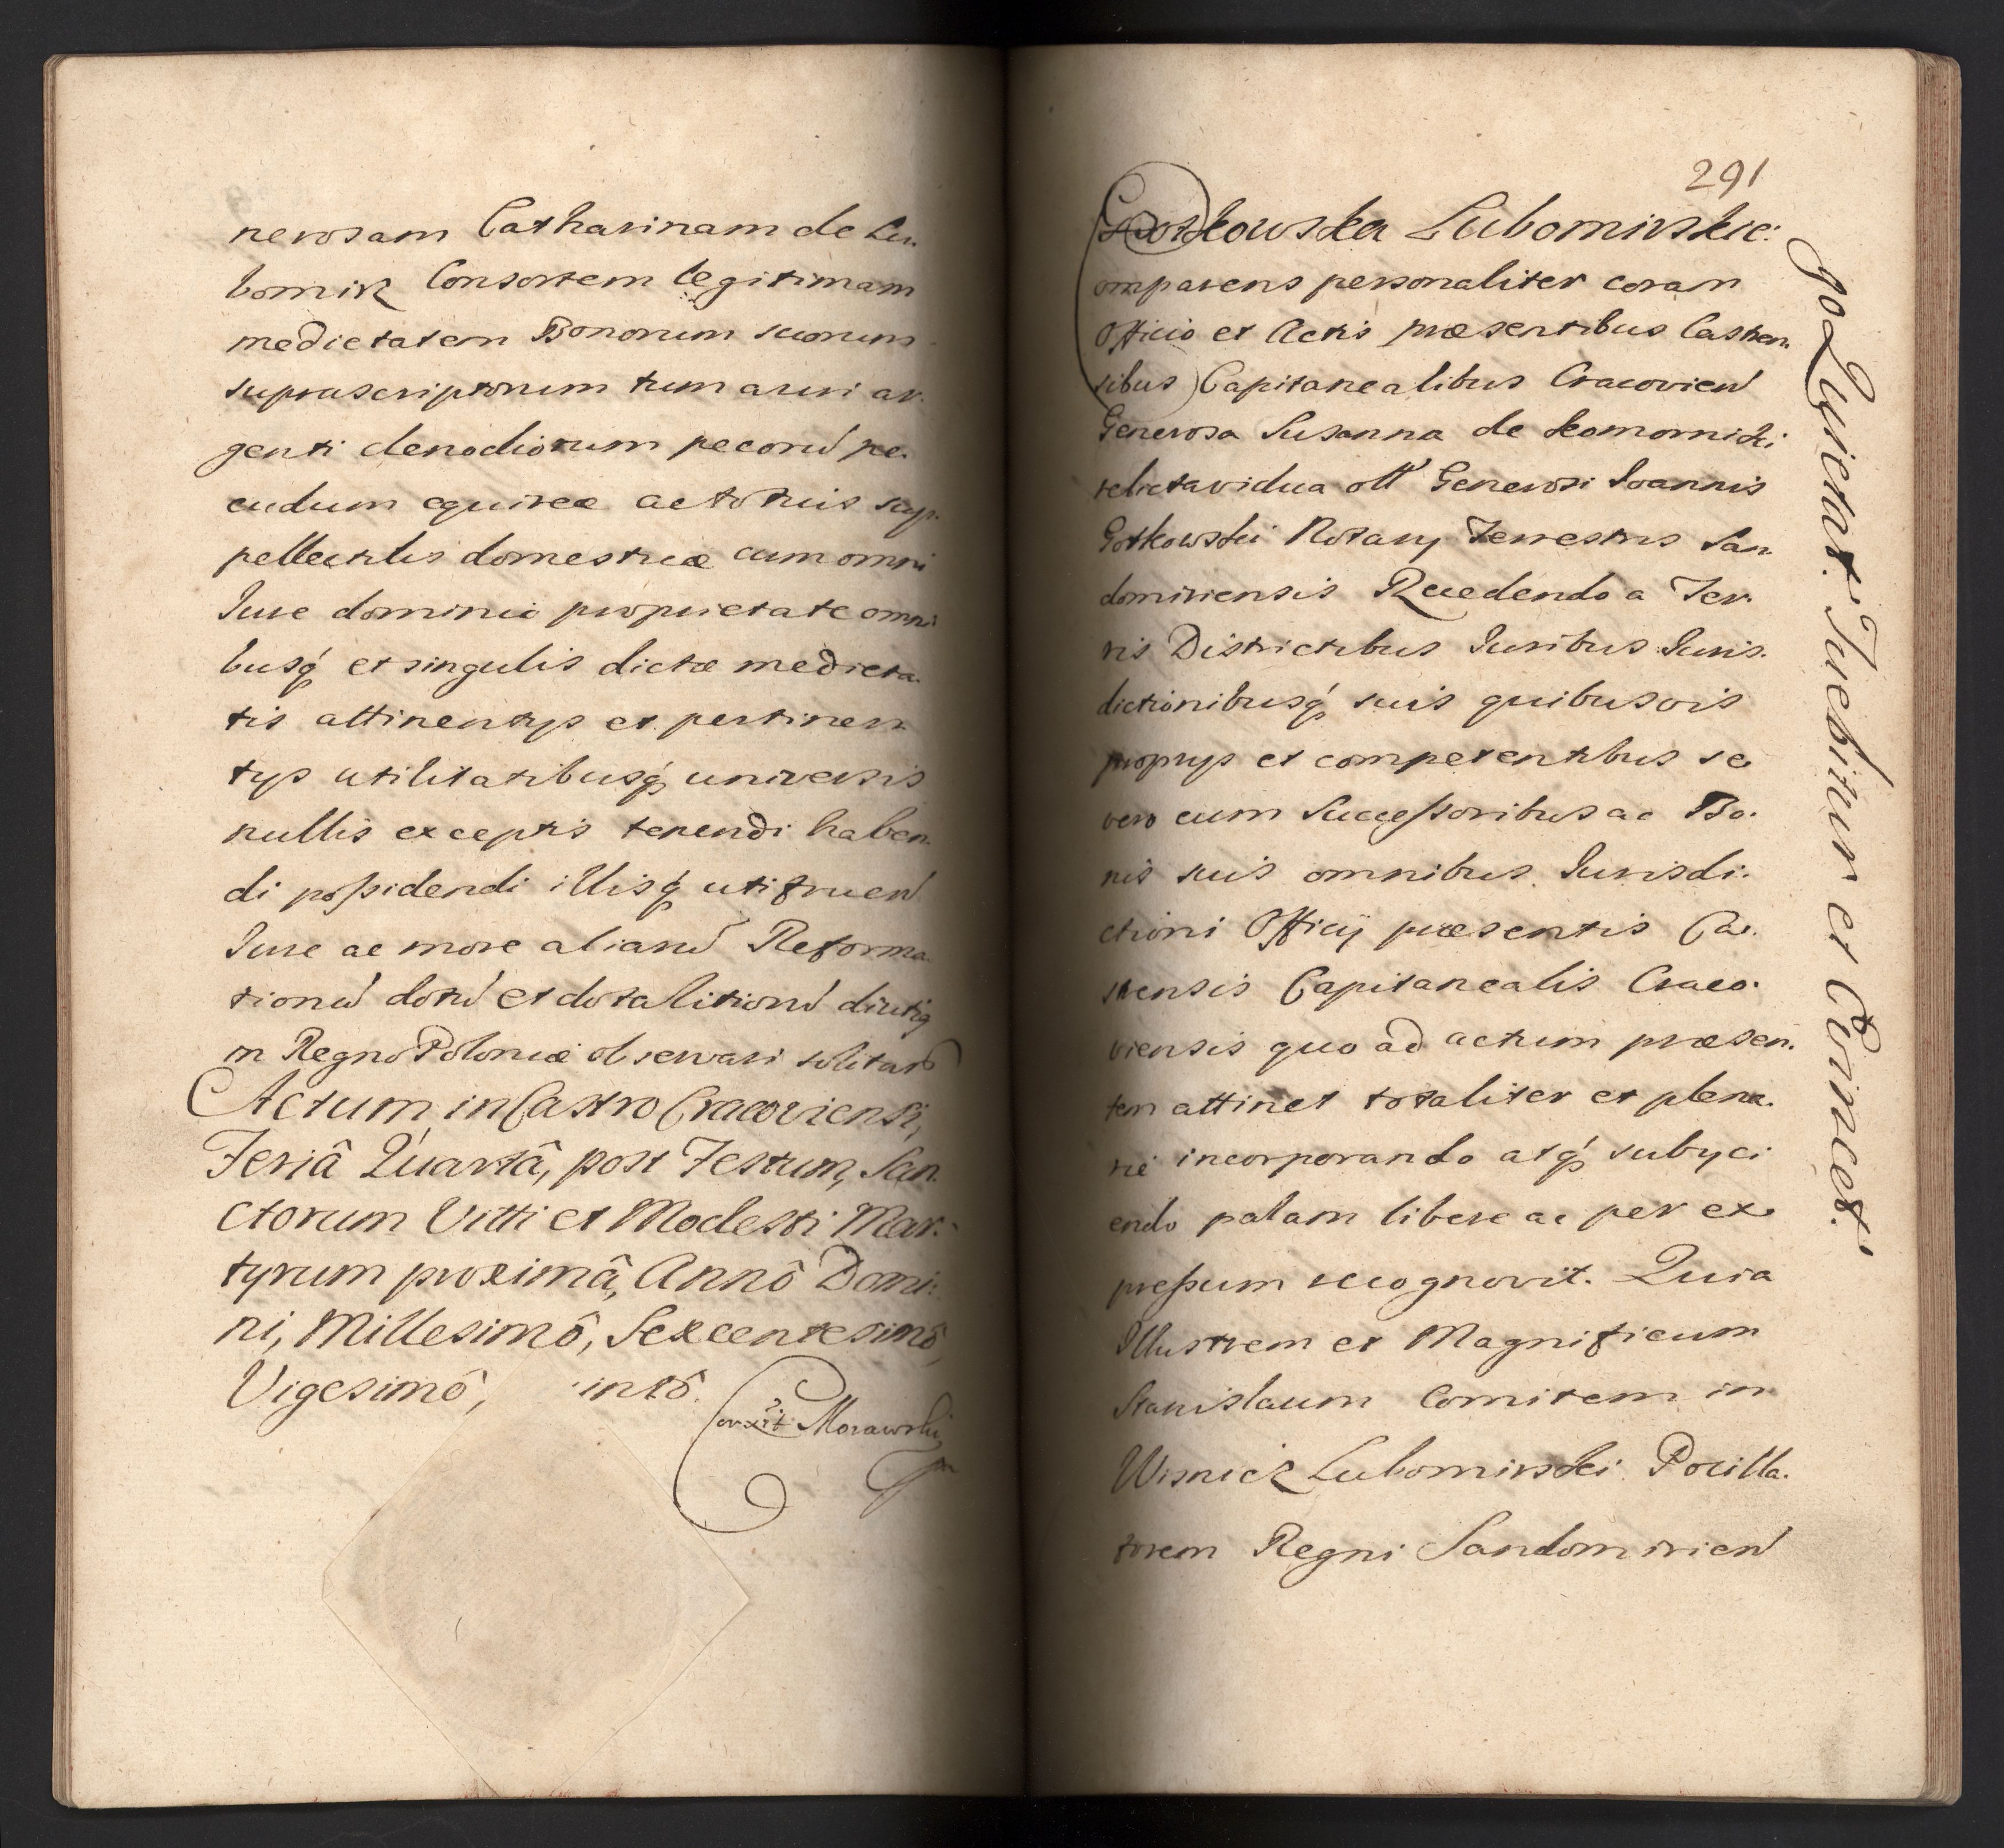 nerosam Catharinam de Lu-
bomirz Consortem legitimam
medietatem Bonorum suorum
suprascriptorum tum auri ar-
genti clenodiorum pecorum pe-
cudum equireæ ac totius sup-
pellectilis domesticæ cum omni
Iure dominio proprietate omni
busq́ et singulis dictæ medieta-
tis attinentys et pertinen-
tys utilitatibusq́ universis
nullis exceptis tenendi haben-
di poſsidendi illisq́ utifruen
Iure ac more aliarum Reforma
tionum dotum et dotalitionum diutiq
in Regno Poloniæ observari solitarum
Actum in Castro Cracoviensi,
Feriâ Quartâ, post Festum, San-
ctorum Vitti et Modesti Mar-
tyrum proximâ, Annô Domi-
ni, Millesimô, Sexcentesimô,
Vigesimô, intô.
Morawski
291
Gotkowska Lubomirskie:
omparens personaliter coram
Officio et Actis præsentibus Castren-
sibus Capitanealibus Cracovien
Generosa Susanna de Komorniki
relicta vidua olim Generosi Ioannis
Gotkowski Notarij Terrestris San-
domiriensis Recedendo a Ter-
ris Districtibus Iuribus Iuris-
dictionibusq́ suis quibusvis
proprys et competentibus se
vero cum Succeſsoribus ac Bo-
nis suis omnibus Iurisdi-
ctioni Officij præsentis Ca-
strensis Capitanealis Craco-
viensis quo ad actum præsen-
tem attinet totaliter et plena-
rie incorporando atq́ subyci
endo palam libere ac per ex-
preſsum recognovit. Quia
Illustrem et Magnificum
Stanislaum Comitem in
Wisnicz Lubomirski Pocilla-
torem Regni Sandomirien
90 Quietat: Tuebitur et Evincet.